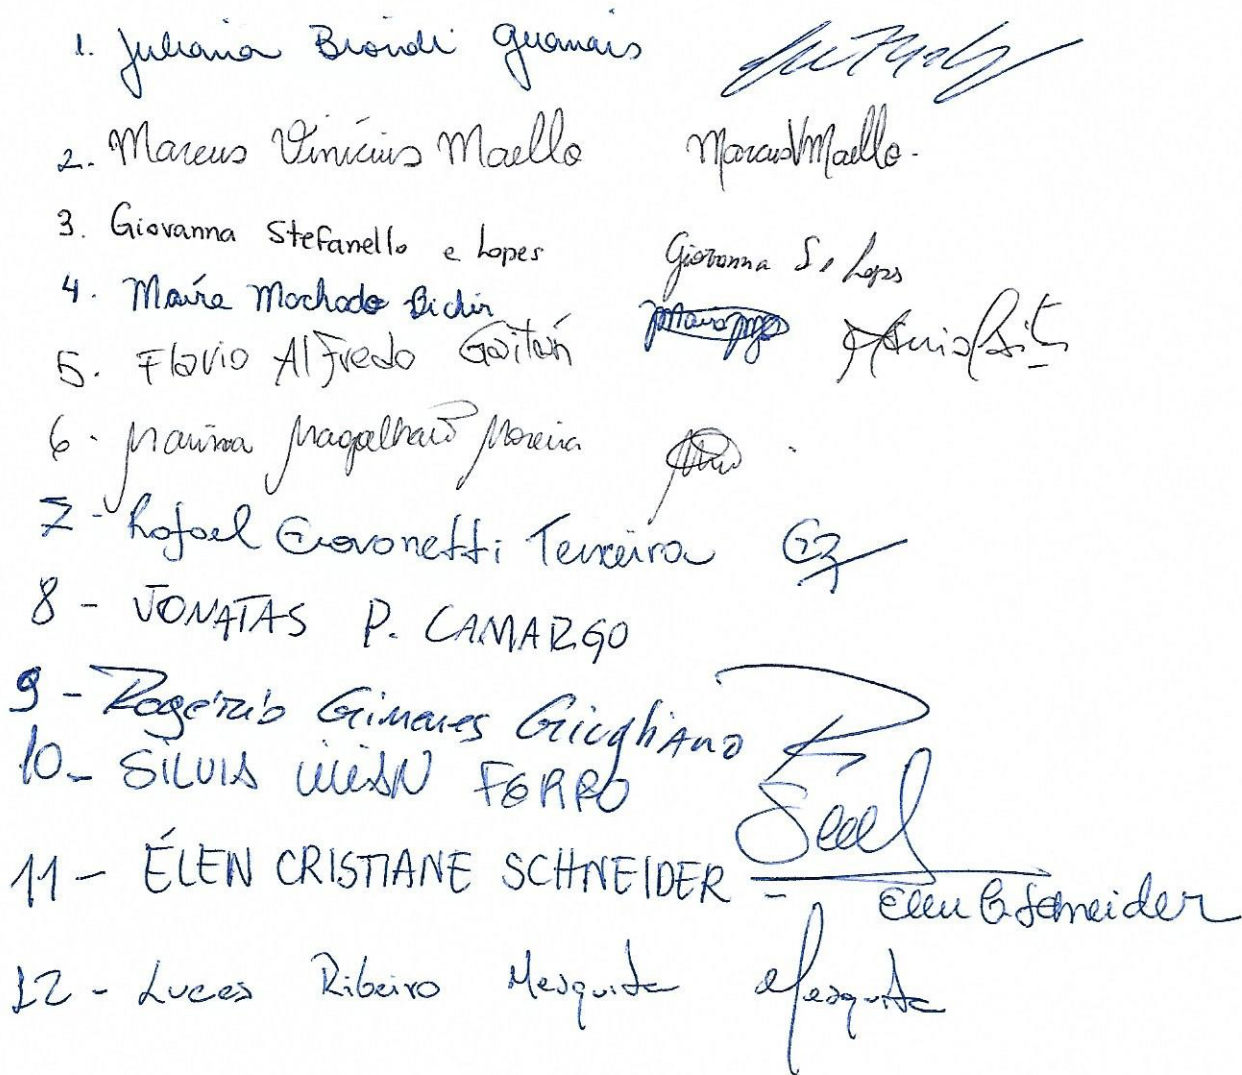 1. Juliana Biondi Guanais
2. Marcus Vinícius Maello MarcusVMaello.
3. Giovanna Stefanello e Lopes Giovanna S. Lopes
4. Maíra Machado Bichir
5. Flavio Alfredo Gaitán
6. Marina Magalhães Moreira
7- Rafael Giovonetti Teixeira
8- JONATAS P. CAMARGO
9- Rogério Gimenes Giugliano
10- SILVIA LILIAN FERRO
11- ÉLEN CRISTIANE SCHNEIDER - Elen C. Schneider
12- Lucas Ribeiro Mesquita Mesquita